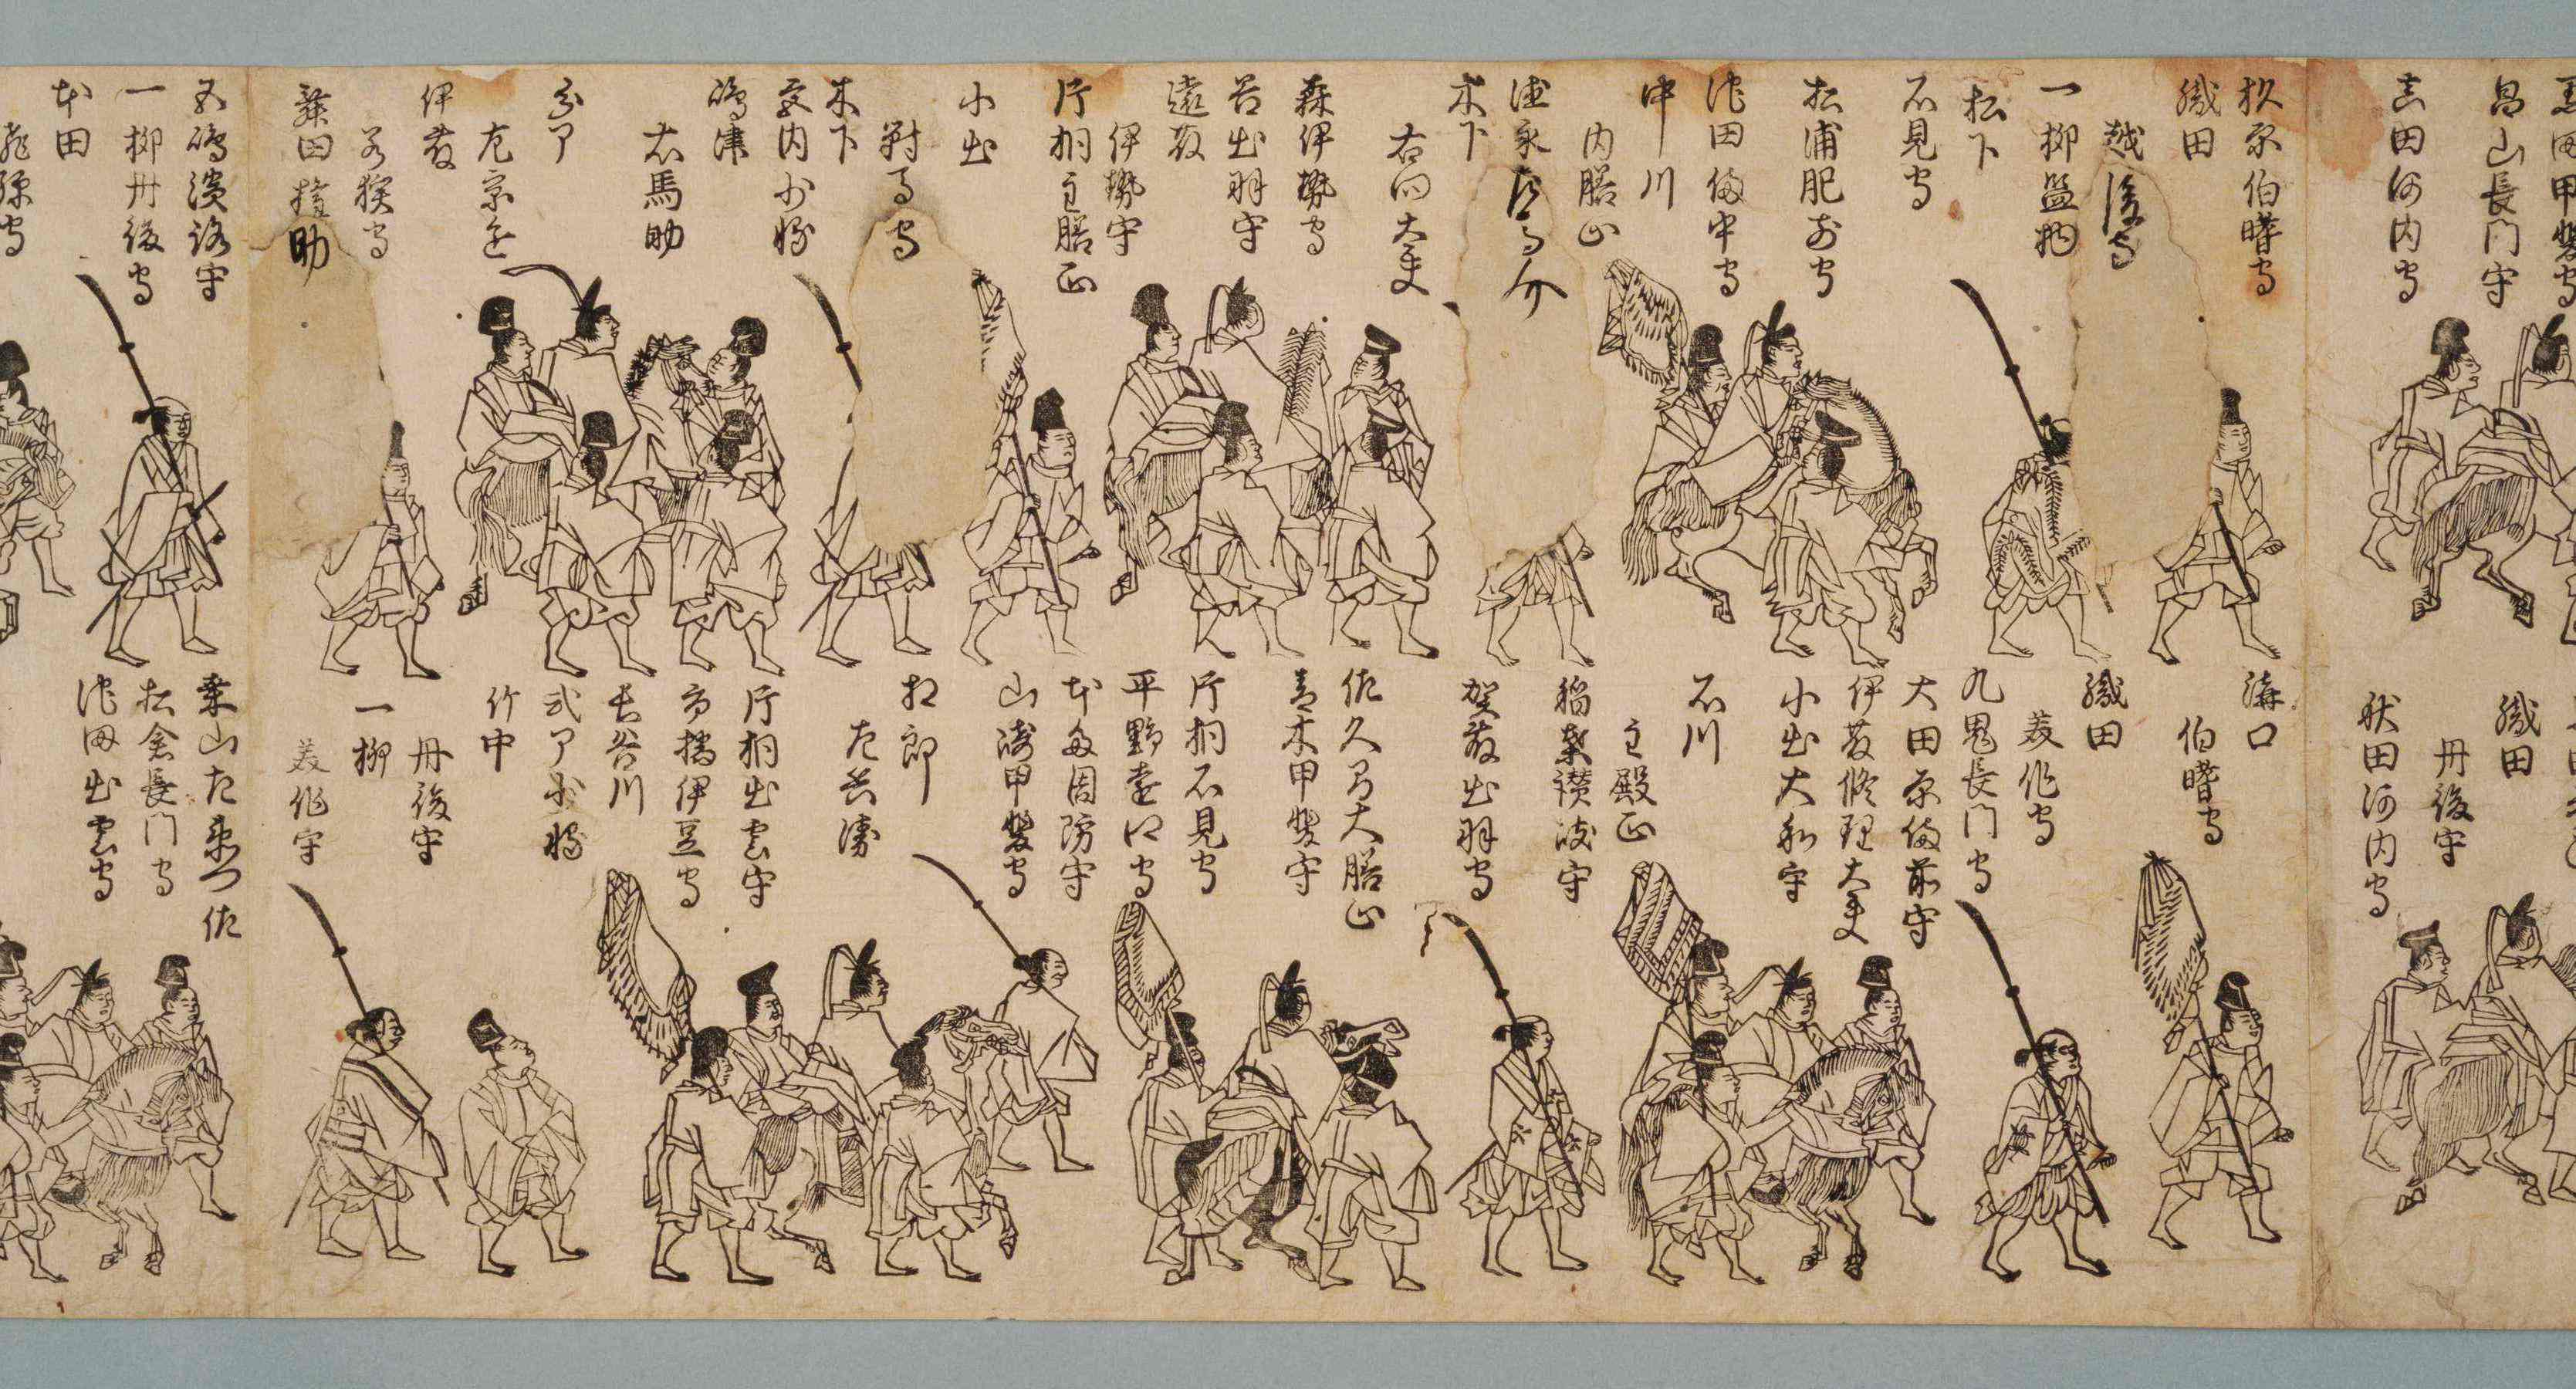 真田河内守
畠山長門守
杦原伯耆守
織田
越後守
一柳監物
松下
石見守
松浦肥前守
池田備中守
中川
内膳正
徳永左馬介
木下
右衛門大夫
森伊勢守
谷出羽守
遠藤
伊勢守
片桐主膳正
小出
対馬守
木下
宮内少将
嶋津
右馬助
左京進
伊藤
若狭守
五嶋淡路守
一柳丹後守
本田
織田
丹後守
秋田河内守
溝口
伯耆守
織田
美作守
九鬼長門守
大田原備前守
伊藤修理大夫
小出大和守
石川
主殿正
稲葉讃岐守
加賀藤出羽守
佐久間大膳正
青木甲斐守
片桐石見守
平野遠江守
本多周防守
山崎甲斐守
左兵衛
片桐出雲守
高橋伊豆守
長谷川
式部少将
竹中
丹後守
一柳
美作守
桑山左衛門佐
松倉長門守
池田出雲守